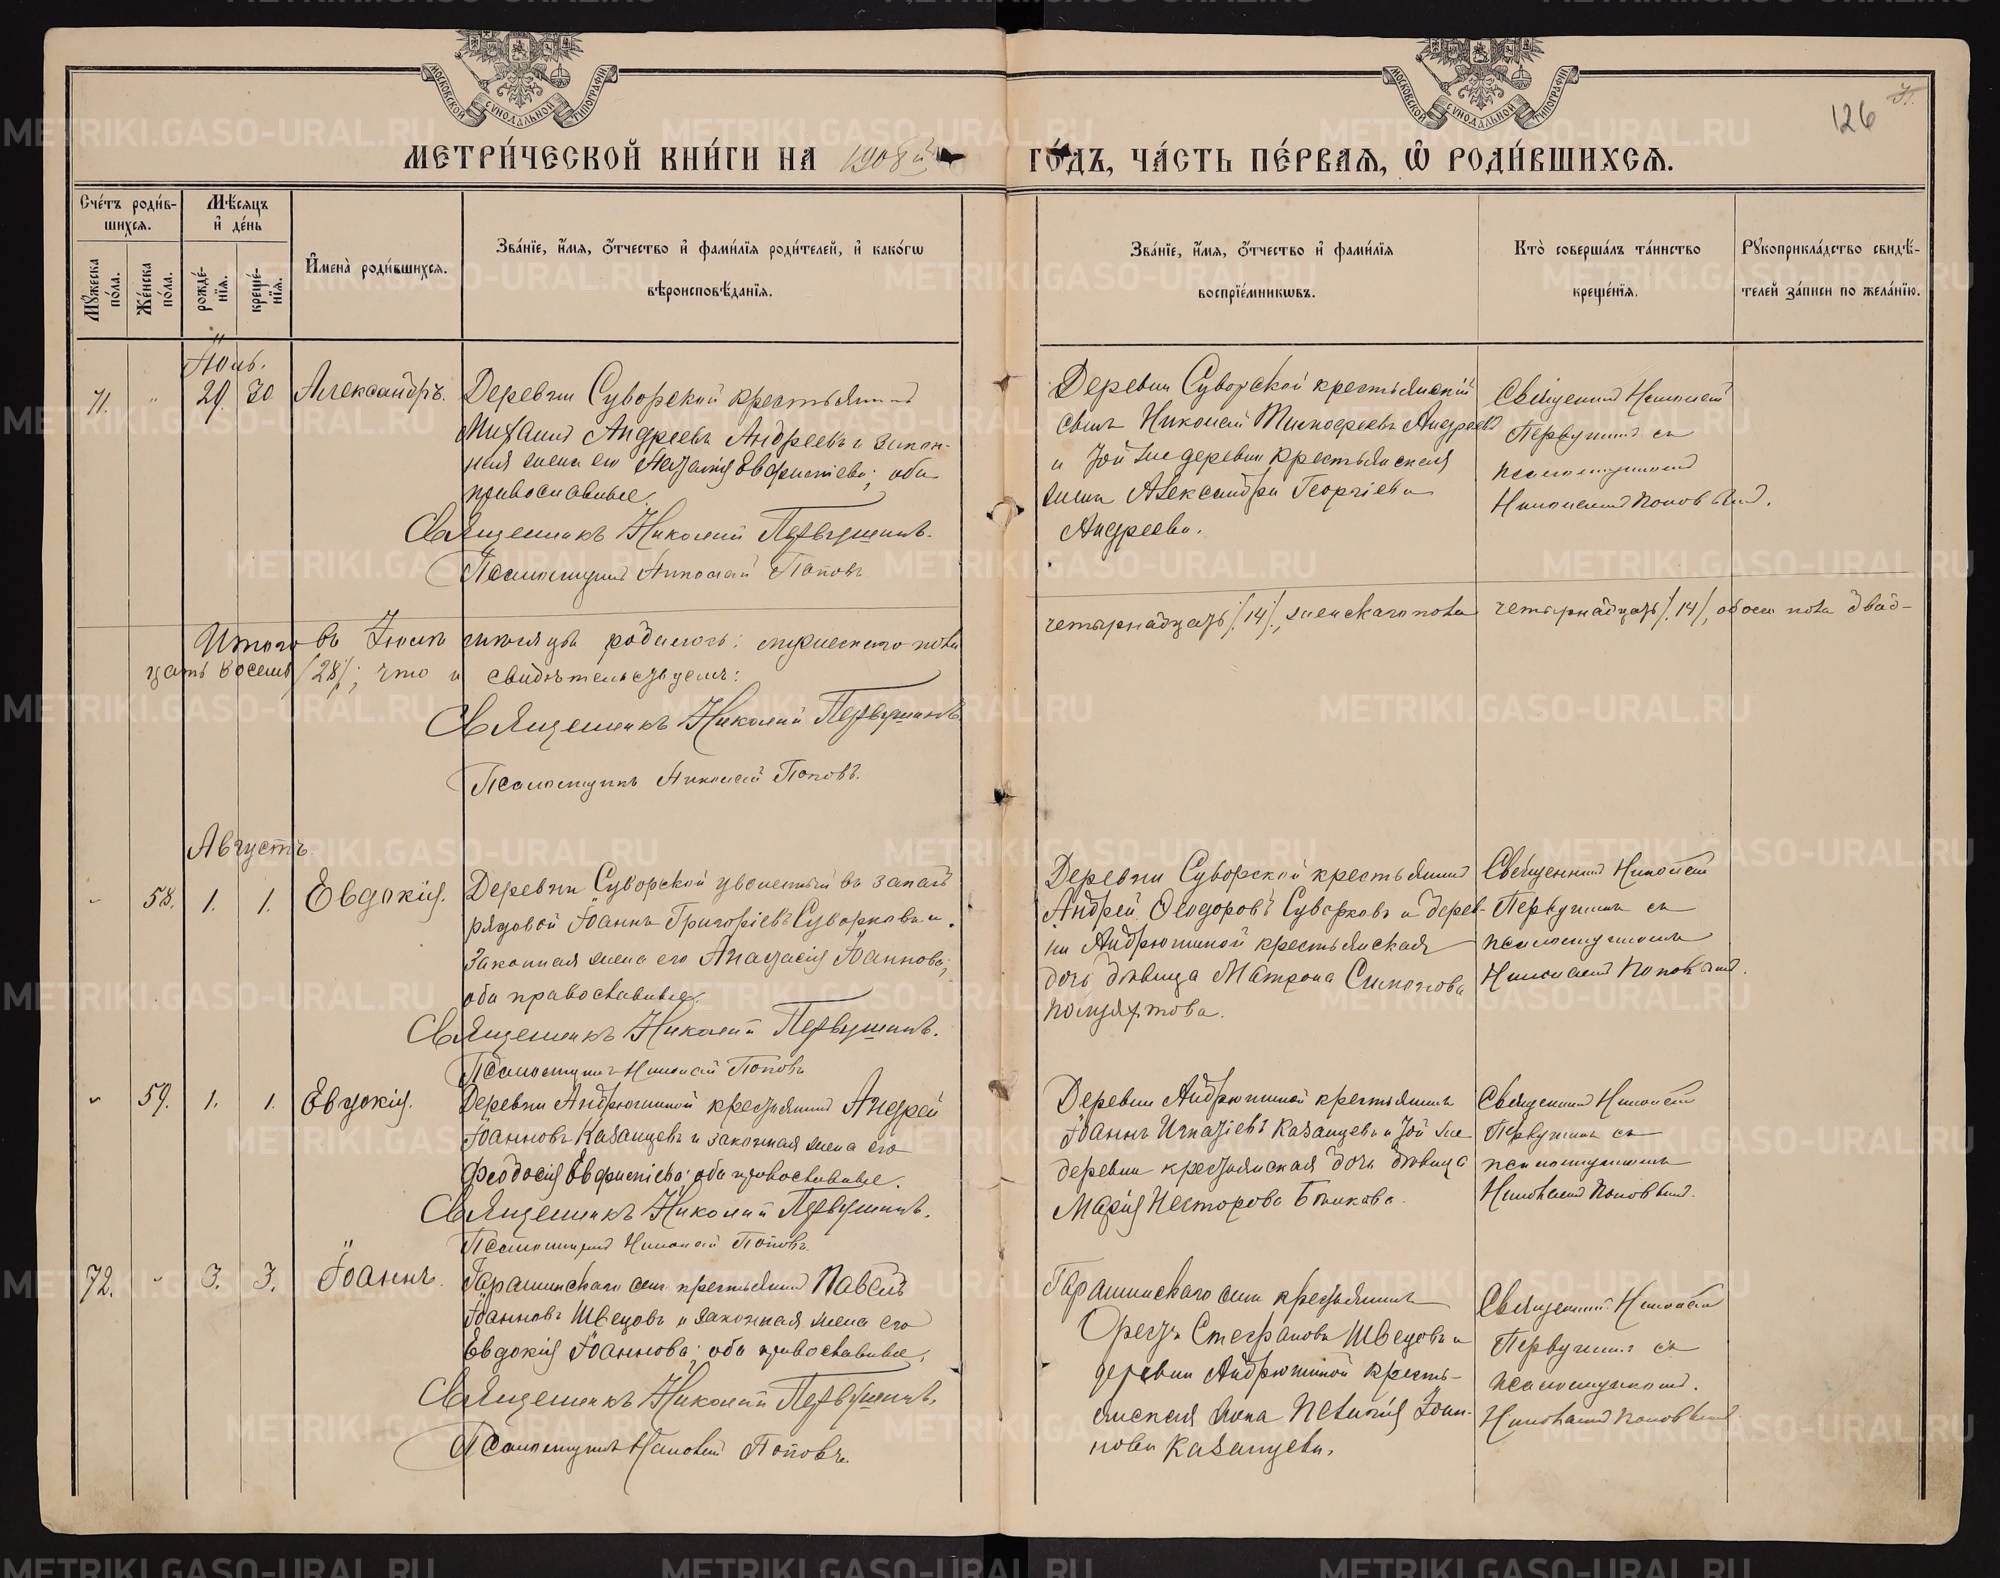 МОСКОВСКОЙ СѴНОДАЛЬНОЙ ТИПОГРАФІИ
МОСКОВСКОЙ СѴНОДАЛЬНОЙ ТИПОГРАФІИ
126
МЕТРИ́ЧЕСКОЙ КНИ́ГИ НА 1908й ГО́ДЪ, ЧА́СТЬ ПЕ́РВАЯ, Ѡ҆ РОДИ́ВШИХСѦ.
Сче́тъ роди́в-
шихсѧ.
Мѣ́сѧцъ
и҆ де́нь
Мꙋ́жеска
по́ла.
Же́нска
по́ла.
рожде́-
нїѧ.
креще́-
нїѧ.
И҆мена̀ роди́вшихсѧ.
Зва́нїе, и҆́мѧ, ѻ҆́тчество и҆ фами́лїѧ роди́телей, и҆ како́гѡ
вѣроисповѣ́данїѧ.
Зва́нїе, и҆́мѧ, ѻ҆́тчество и҆ фами́лїѧ
воспрїе́мникѡвъ.
Кто̀ соверша́лъ та́инство
креще́нїѧ.
Рꙋкоприкла́дство свидѣ́-
телей за́писи по жела́нїю.
Іюль.
71. " 29. 30 Александръ.
Деревни Суворской крестьянинъ
Михаилъ Андреевъ Андреевъ и закон-
ная жена его Наталія Евфимиева; оба
православные.
Священникъ Николай Первушинъ.
Псаломщикъ Николай Поповъ
Деревни Суворской крестьянскій
сынъ Николай Тимофеевъ Андреевъ
и той же деревни крестьянская
жена Александра Георгіева
Андреева.
Священникъ Николай
Первушинъ съ
псаломщикомъ
Николаемъ Поповымъ.
Итого въ Іюлѣ мѣсяцѣ родилось: мужескаго пола четырнадцать /14/, женскаго пола четырнадцать /14/, обоего пола двад-
цать восемь /28/; что и свидѣтельствуемъ:
Священникъ Николай Первушинъ
Псаломщикъ Николай Поповъ.
Августъ.
" 58. 1. 1. Евдокія.
Деревни Суворской уволенный въ запасъ
рядовой Іоаннъ Григоріевъ Суворковъ и
законная жена его Анастасія Іоаннова;
оба православные.
Священникъ Николай Первушинъ.
Псаломщикъ Николай Поповъ
Деревни Суворской крестьянинъ
Андрей Ѳеодоровъ Суворковъ и дерев-
ни Андрюшиной крестьянская
дочь дѣвица Матрона Симонова
Полуяхтова.
Священникъ Николай
Первушинъ съ
псаломщикомъ
Николаемъ Поповымъ.
" 59. 1. 1. Евдокія.
Деревни Андрюшиной крестьянинъ Андрей
Іоанновъ Казанцевъ и законная жена его
Феодосія Евфимиева; оба православные.
Священникъ Николай Первушинъ.
Псаломщикъ Николай Поповъ.
Деревни Андрюшиной крестьянинъ
Іоаннъ Игнатіевъ Казанцевъ и той же
деревни крестьянская дочь дѣвица
Марія Несторова Быкова.
Священникъ Николай
Первушинъ съ
псаломщикомъ
Николаемъ Поповымъ.
72. " 3. 3. Іоаннъ.
Гарашкинскаго села крестьянинъ Павелъ
Іоанновъ Швецовъ и законная жена его
Евдокія Іоаннова; оба православные.
Священникъ Николай Первушинъ.
Псаломщикъ Николай Поповъ.
Гарашкинскаго села крестьянинъ
Орестъ Стефановъ Швецовъ и
деревни Андрюшиной кресть-
янская жена Пелагія Іоан-
нова Казанцева.
Священникъ Николай
Первушинъ съ
псаломщикомъ.
Николаемъ Поповымъ.
METRIKI.GASO-URAL.RU